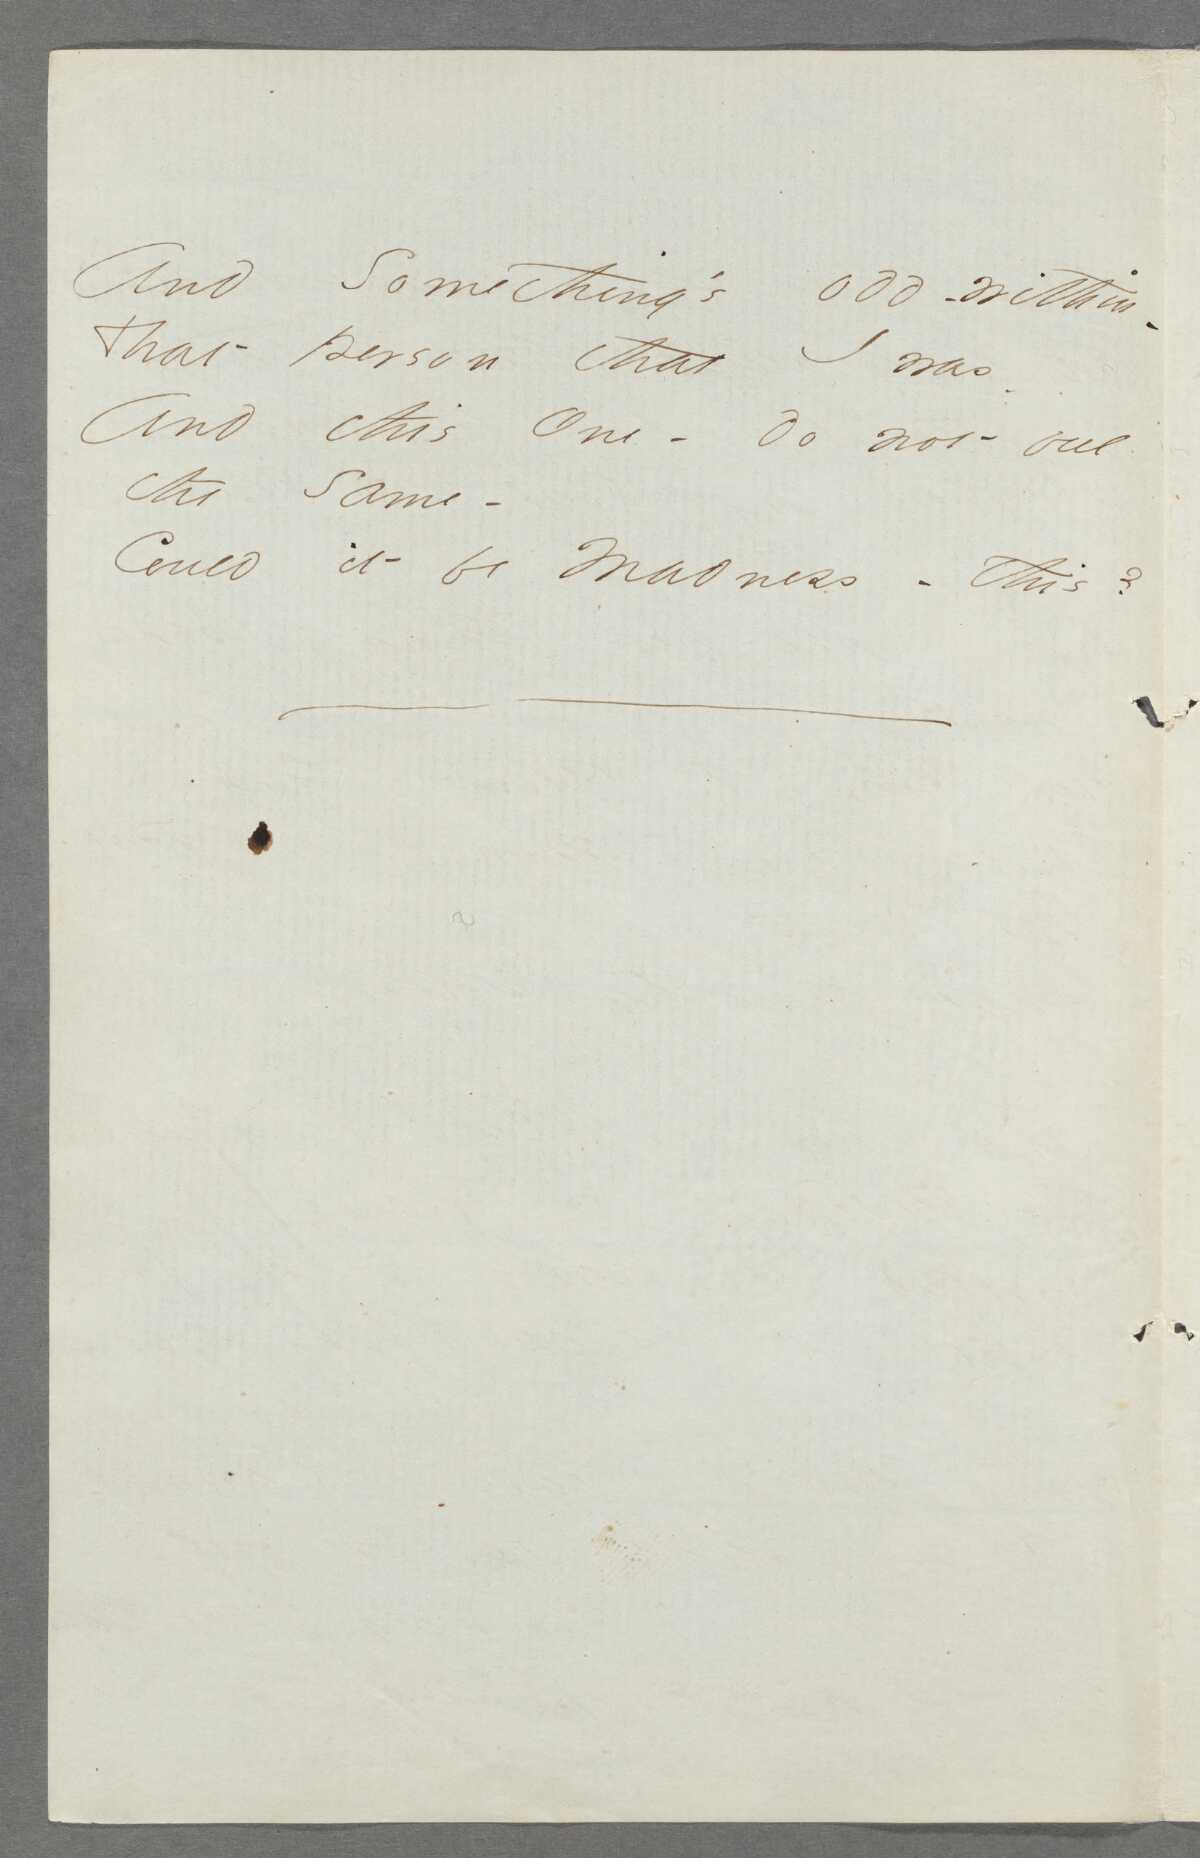 And Something's odd - within -
that person that I was -
And this One - do not feel
the same -
Could it be Madness - this?